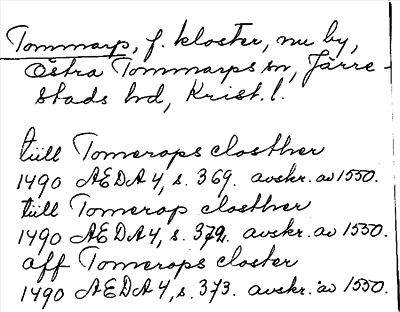 Tommarp, f. kloster, nu by,
Östra Tommarps sn, Järre-
stads hd, Krist. l.
tiill Tomerops closther
1490 ÆDA 4, s. 369. avskr. av 1550.
tiill Tomerop closther
1490 ÆDA 4, s. 372. avskr. av 1550.
aff Tomerops closter
1490 ÆDA 4, s. 373. avskr. av 1550.